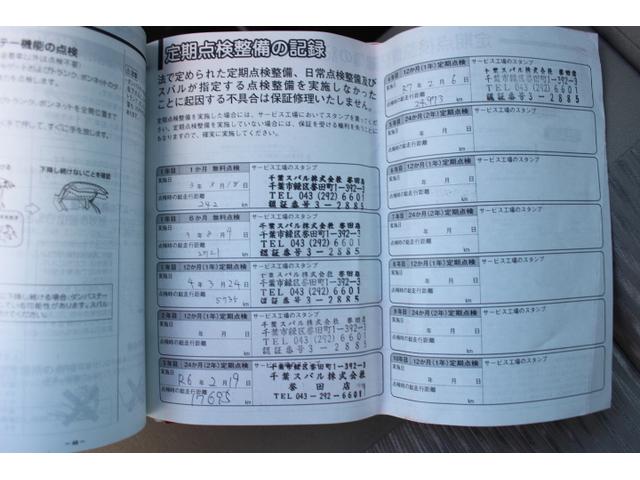 テー機能の点検
下降し続けないことを確認
下降し続ける場合、ダンパステー
定期点検整備の記録
法で定められた定期点検整備、日常点検整備及び
スバルが指定する点検整備を実施しなかった
ことに起因する不具合は保証修理いたしません。
定期点検整備を実施した場合には、サービス工場においてスタンプを貰ってくだ
さい。定期点検整備を実施していない場合には、保証を受ける権利を失うことに
もなりますので、確実に実施してください。
1年目 1か月 無料点検 サービス工場のスタンプ
実施日 3年 月 18日
点検時の総走行距離
242 km
千葉スバル株式会社 誉田店
千葉市緑区誉田町1-392-3
TEL 043 (292) 6601
認証番号3-2885
1年目 6か月 無料点検 サービス工場のスタンプ
実施日 3年 8月 日
点検時の総走行距離
km
千葉スバル株式会社 誉田店
千葉市緑区誉田町1-392-3
TEL 043 (292) 6601
認証番号3-2885
12か月(1年)定期点検 サービス工場のスタンプ
実施日 4年 3月 24日
点検時の総走行距離
5735 km
千葉スバル株式会社 誉田店
千葉市緑区誉田町1-392-3
TEL 043 (292) 6601
認証番号3-2885
24か月(2年)定期点検 サービス工場のスタンプ
実施日 年 月 日
点検時の総走行距離
km
千葉スバル株式会社 誉田店
千葉市緑区誉田町1-392-3
TEL 043 (292) 6601
認証番号3-2885
24か月(2年)定期点検 サービス工場のスタンプ
実施日 R6年 2月 19日
点検時の総走行距離
17695 km
千葉スバル株式会社
誉田店
TEL 043-292-6601
12か月(1年)定期点検 サービス工場のスタンプ
実施日 R7年 2月 6日
点検時の総走行距離
24973 km
千葉スバル株式会社 誉田店
千葉市緑区誉田町1-392-3
TEL 043 (292) 6601
認証番号3-2885
24か月(2年)定期点検 サービス工場のスタンプ
実施日 年 月 日
点検時の総走行距離
km
12か月(1年)定期点検 サービス工場のスタンプ
実施日 年 月 日
点検時の総走行距離
km
24か月(2年)定期点検 サービス工場のスタンプ
実施日 年 月 日
点検時の総走行距離
km
12か月(1年)定期点検 サービス工場のスタンプ
実施日 年 月 日
点検時の総走行距離
km
24か月(2年)定期点検 サービス工場のスタンプ
実施日 年 月 日
点検時の総走行距離
km
10年目 12か月(1年)定期点検 サービス工場のスタンプ
実施日 年 月 日
点検時の総走行距離
km